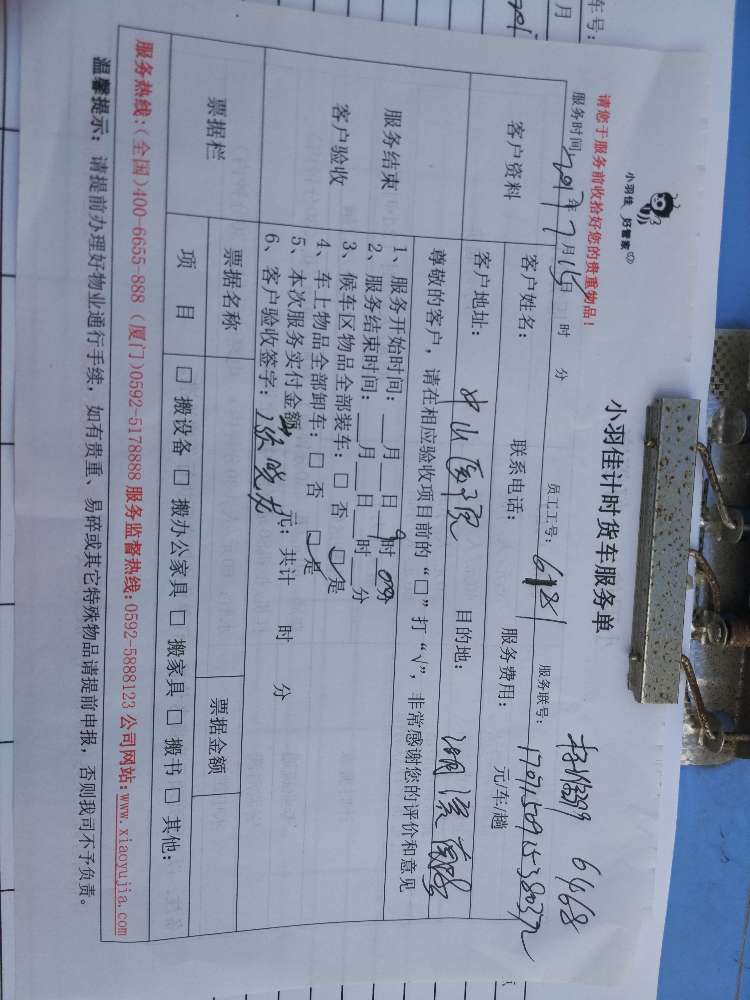 小羽佳 好管家
小羽佳计时货车服务单
6468
请您于服务前收拾好您的贵重物品！
服务时间：2017年7月15日 时 分 员工工号：6481 服务联号：
客户资料 客户姓名： 联系电话： 服务费用： 元/车/趟
客户地址：中山医院 目的地：
尊敬的客户，请在相应验收项目前的“□”打“√”，非常感谢您的评价和意见
服务结束
客户验收
1、服务开始时间：__月__日 9时00分
2、服务结束时间：__月__日__时__分
3、候车区物品全部装车：□ 否 ☑ 是
4、车上物品全部卸车：□ 否 ☑ 是
5、本次服务实付金额 元；共计 时 分
6、客户验收签字：张晓龙
票据栏 票据名称 票据金额
项 目 □ 搬设备 □ 搬办公家具 □ 搬家具 □ 搬书 □ 其他：
服务热线：(全国)400-6655-888 (厦门)0592-5178888 服务监督热线：0592-5888123 公司网站：www.xiaoyujia.com
温馨提示：请提前办理好物业通行手续，如有贵重、易碎或其它特殊物品请提前申报，否则我司不予负责。
车号：
月